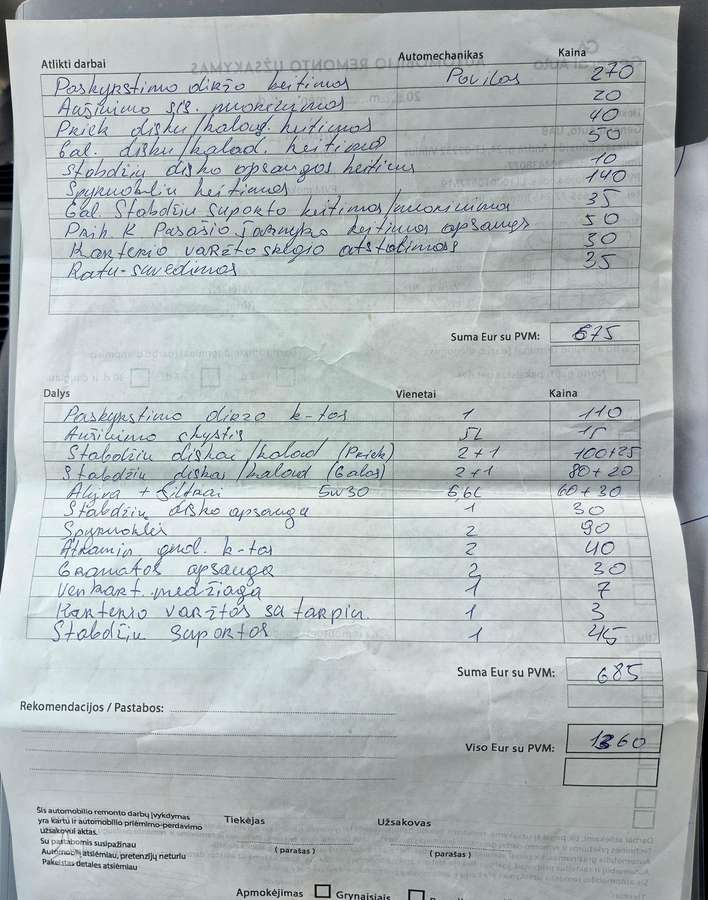 Atlikti darbai Automechanikas Kaina
Paskyrstimo diržo keitimas Povilas 270
Aušinimo sis. nuorinimas 20
Priek diskų/kalad. keitimas 40
Gal. diskų/kalad. keitimas 50
Stabdžių disko apsaugos keitimas 10
Spyruoklių keitimas 140
Gal. Stabdžių suporto keitimas/nuorinimas 35
Prik. K Pusašio įvarsyko keitimas apsaugos 50
Karterio varžto sriegio atstatimas 30
Ratu-suvedimas 35
Suma Eur su PVM: 675
Dalys Vienetai Kaina
Paskyrstimo diržo k-tas 1 110
Aušinimo skystis 5L 15
Stabdžių diskai/kalad (Priek) 2+1 100+25
Stabdžių diskai/kalad (Galas) 2+1 80+20
Alyva + Filtrai 5w30 6,6L 60+30
Stabdžių disko apsauga 1 30
Spyruoklės 2 90
Atramin guol. k-tas 2 40
Granatos apsauga 2 30
Ven kart. medžiaga 1 7
Karterio varžtas su tarpin. 1 3
Stabdžių suportas 1 45
Suma Eur su PVM: 685
Rekomendacijos / Pastabos:
Viso Eur su PVM: 1360
Šis automobilio remonto darbų įvykdymas
yra kartu ir automobilio priėmimo-perdavimo
užsakovui aktas.
Tiekėjas Užsakovas
Su pastabomis susipažinau
Automobilį atsiėmiau, pretenzijų neturiu
Pakeistas detales atsiėmiau
( parašas ) ( parašas )
Apmokėjimas Grynaisiais